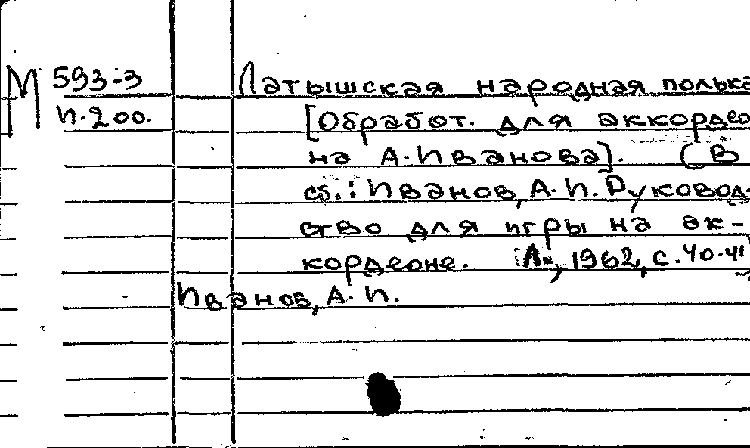 М 593-3 Латышская народная полька
п.200. [Обработ. для аккордео
на А. Иванова]. (В
сб.: Иванов, А. И. Руковод-
ство для игры на ак-
кордеоне. Л., 1962, с. 40-41
Иванов, А. И.